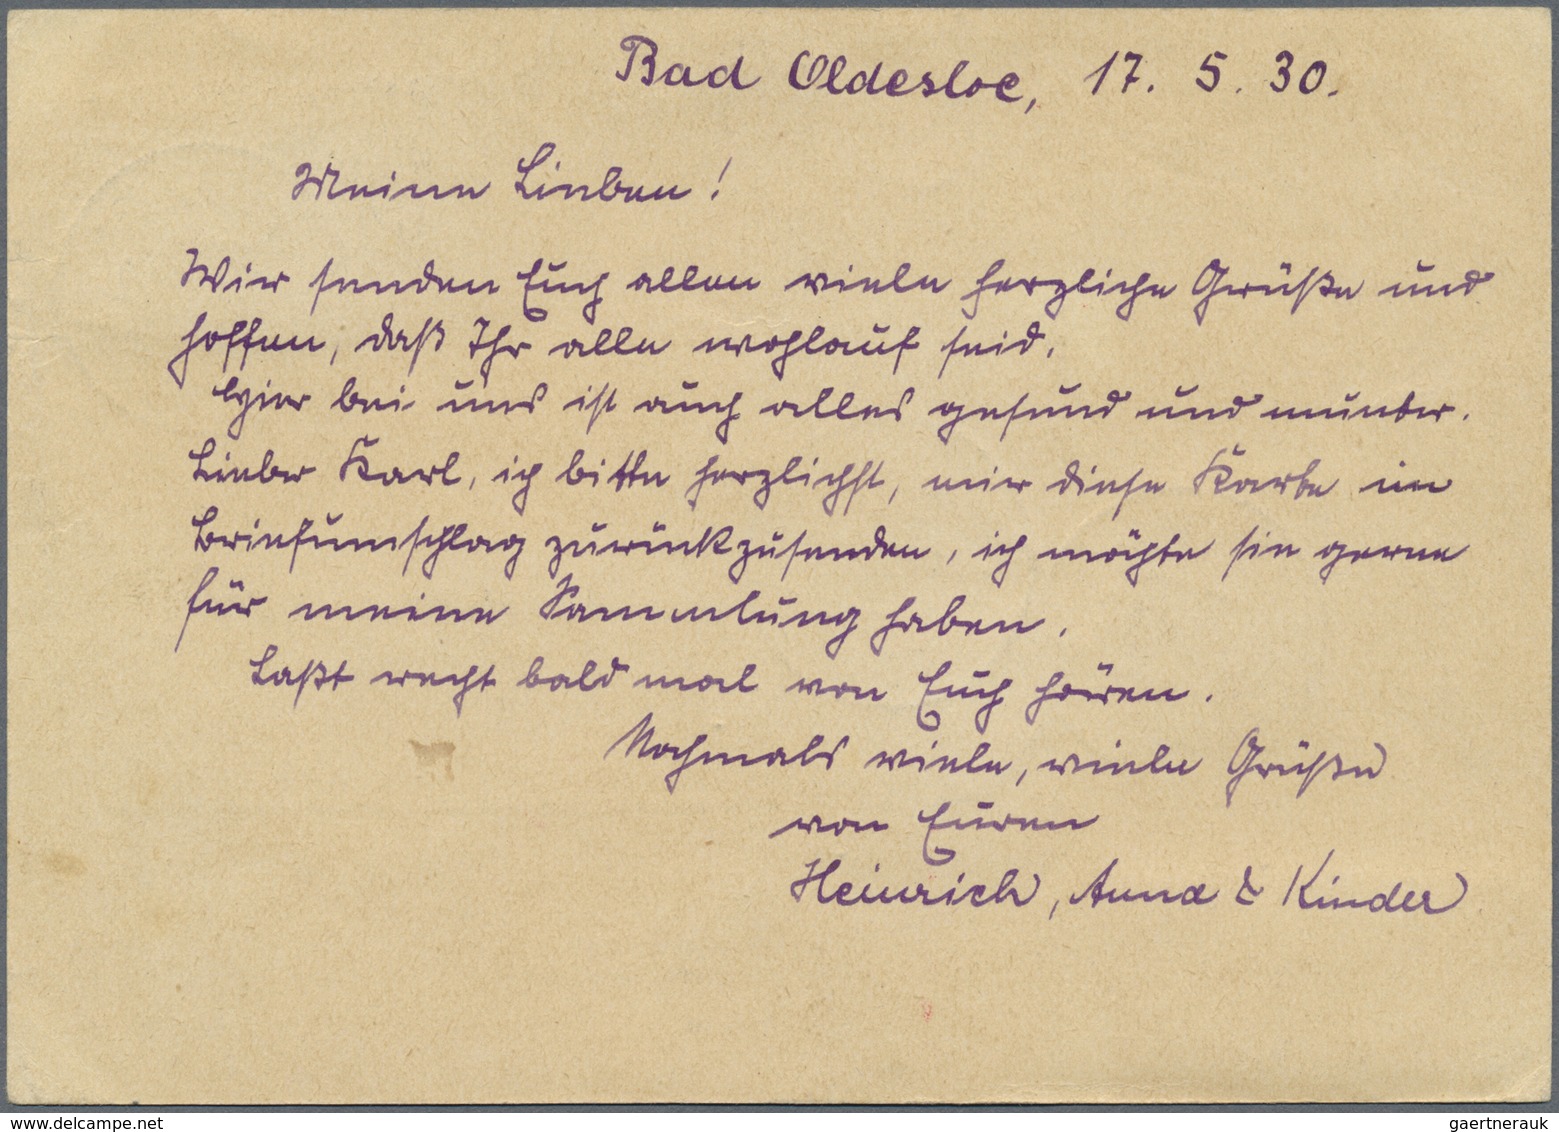 Bad Oldesloe, 17. 5. 30.
Meine Lieben!
Wir senden Euch allen viele herzliche Grüße und
hoffen, daß Ihr alle wohlauf seid.
Hier bei uns ist auch alles gesund und munter.
Lieber Karl, ich bitte herzlichst, mir diese Karte im
Briefumschlag zurückzusenden, ich möchte sie gerne
für meine Sammlung haben.
Laßt recht bald mal von Euch hören.
Nochmals viele, viele Grüße
von Euren
Heinrich, Anna & Kinder
www.delcampe.net
gaertnerauk